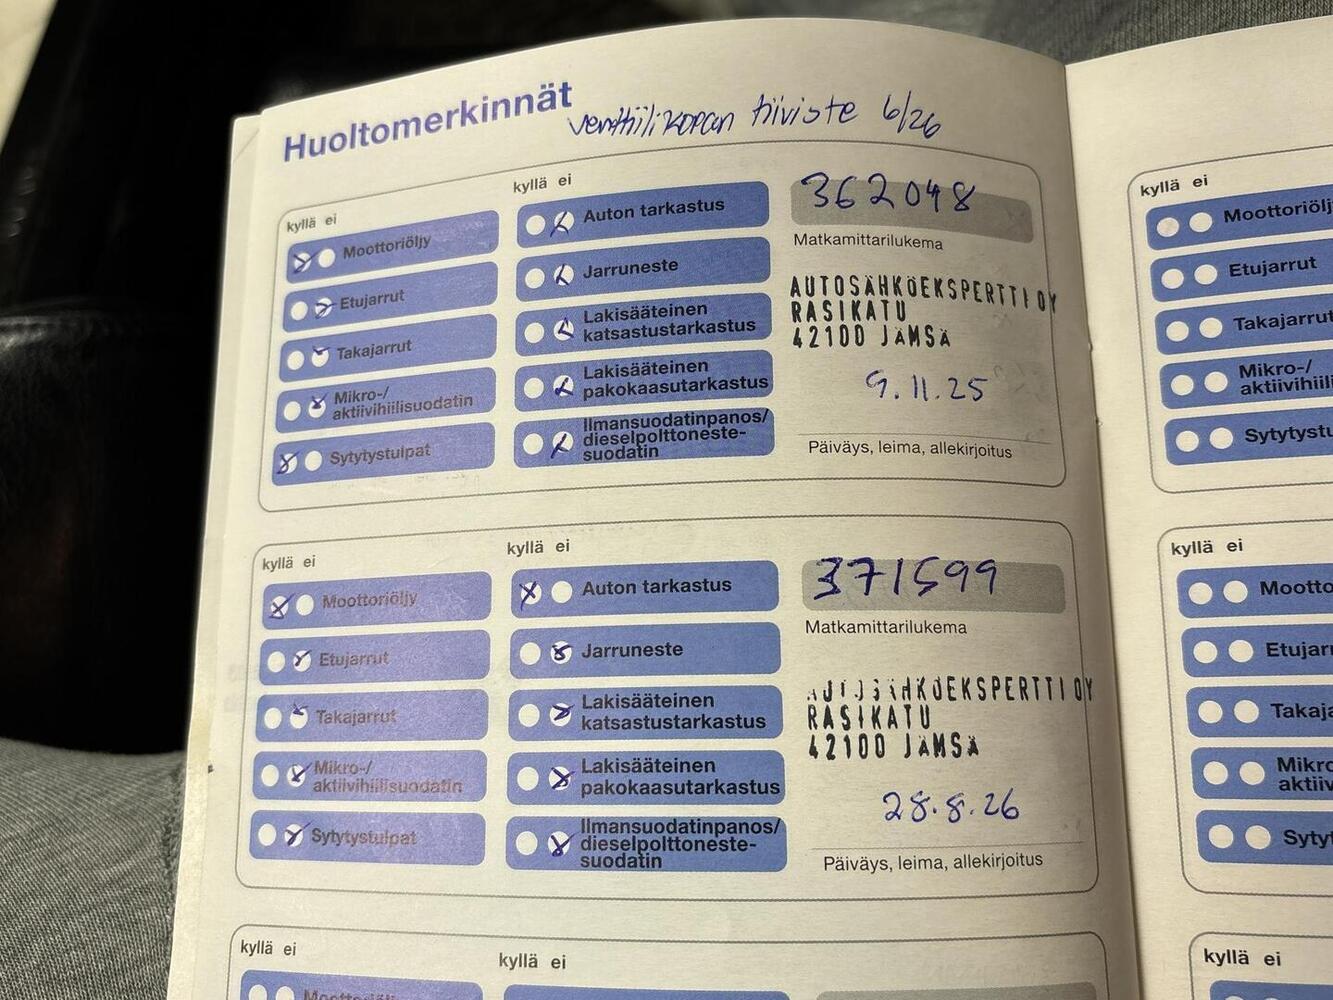 Huoltomerkinnät
venttiilikopan tiiviste 6/26
kyllä ei
Moottoriöljy
Etujarrut
Takajarrut
Mikro-/
aktiivihiilisuodatin
Sytytystulpat
kyllä ei
Auton tarkastus
Jarruneste
Lakisääteinen
katsastustarkastus
Lakisääteinen
pakokaasutarkastus
Ilmansuodatinpanos/
dieselpolttoneste-
suodatin
362048
Matkamittarilukema
AUTOSÄHKÖEKSPERTTI OY
RASIKATU
42100 JÄMSÄ
9.11.25
Päiväys, leima, allekirjoitus
kyllä ei
Moottoriöljy
Etujarrut
Takajarrut
Mikro-/
aktiivihiilisuodatin
Sytytystulpat
kyllä ei
Auton tarkastus
Jarruneste
Lakisääteinen
katsastustarkastus
Lakisääteinen
pakokaasutarkastus
Ilmansuodatinpanos/
dieselpolttoneste-
suodatin
371599
Matkamittarilukema
AUTOSÄHKÖEKSPERTTI OY
RASIKATU
42100 JÄMSÄ
28.8.26
Päiväys, leima, allekirjoitus
kyllä ei
Moottoriöljy
kyllä ei
kyllä ei
Moottoriölj
Etujarrut
Takajarrut
Mikro-/
aktiivihiili
Sytytystu
kyllä ei
Mootto
Etujarr
Takaja
Mikro
aktiiv
Syty
kyllä ei